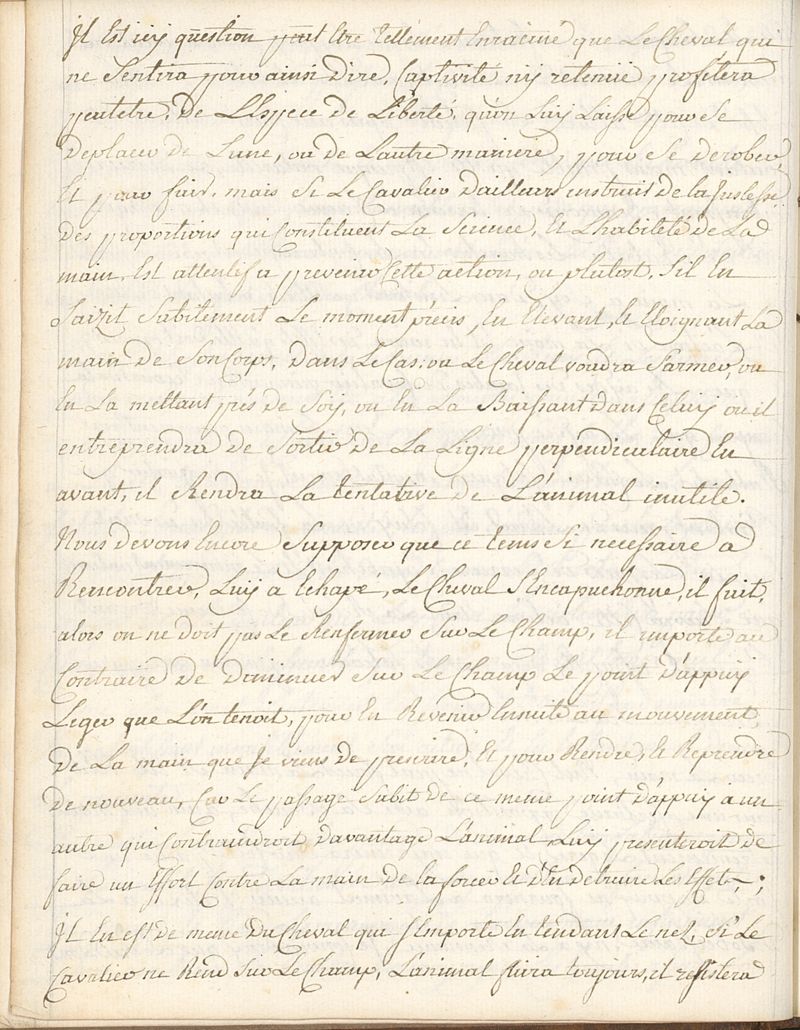 Jl Est icy question peut Etre tellement Enraciné que Le Cheval qui
ne Sentira pour ainsi dire, Captivité ny retenüe profitera
peutetre, de L'Espece de Liberté, qu'on Luy Laisse pour Se
deplacer de L'une, ou de L'autre maniere, pour Se derober,
Et pour fuir, mais Si Le Cavalier d'ailleurs instruit de la Justesse
des proportions qui Constituent La Science, Et L'habileté de La
main, Est attentif a prevenir Cette action, ou plutost, S'il En
Saizit Subitement Le moment précis, En Elevant, Et Eloignant La
main de Son Corps, dans Le Cas, ou Le Cheval voudra S'armer, ou
En La mettant prés de Soy, ou En La Baissant dans Celuy ou il
entreprendra de Sortir de La Ligne perpendiculaire En
avant, il Rendra La tentative de L'animal inutile.
Nous devons Encore Supposer que ce tems Si necessaire a
Rencontrer, Luy a Echapé, Le Cheval S'Encapuchonne, il fuit,
alors on ne doit pas Le Renfermer Sur Le Champ, il importe au
Contraire de Diminuer Sur Le Champ Le point d'appuy
Leger que L'on tenoit, pour En Revenir Ensuite au mouvement
de La main que Je viens de prescrire, Et pour Rendre, Et Reprendre
de nouveau, Car Le passage Subit de ce meme point d'appuy a un
autre qui Contraindroit davantage L'animal, Luy presenteroit de
faire un Effort Contre La main de la forcer Et d'En detruire Les Effets;
Jl En est de meme du Cheval qui S'Emporte En tendant Le nez, Si Le
Cavalier ne Rend Sur Le Champ, L'animal fuira toujours, il resistera